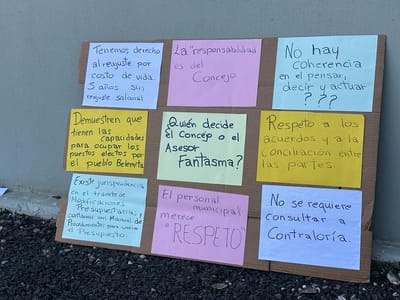 Tenemos derecho
al reajuste por
costo de vida.
5 años sin
reajuste salarial
La "responsabilidad
es del
Concejo
No hay
coherencia
en el pensar,
decir y actuar
? ? ?
Demuestren que
tienen las
capacidades
para ocupar los
puestos electos por
el pueblo Belemita
¿Quién decide
el Concejo o el
Asesor
Fantasma?
Respeto a los
acuerdos y a la
conciliación entre
las partes.
Existe jurisprudencia
en el trámite de
Modificaciones
Presupuestarias y
contamos con Manual de
Procedimientos para variar
el Presupuesto
El personal
municipal
merece
"RESPETO
No se requiere
consultar a
Contraloría.